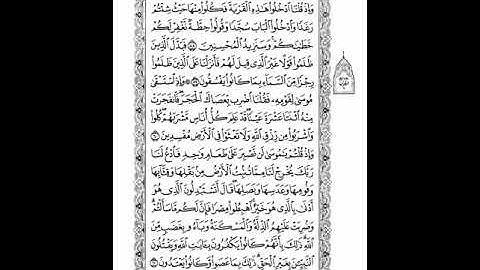 وَإِذْ قُلْنَا ٱدْخُلُوا۟ هَٰذِهِ ٱلْقَرْيَةَ فَكُلُوا۟ مِنْهَا حَيْثُ شِئْتُمْ
رَغَدًا وَٱدْخُلُوا۟ ٱلْبَابَ سُجَّدًا وَقُولُوا۟ حِطَّةٌ نَّغْفِرْ لَكُمْ
خَطَٰيَٰكُمْ وَسَنَزِيدُ ٱلْمُحْسِنِينَ ٥٨ فَبَدَّلَ ٱلَّذِينَ
ظَلَمُوا۟ قَوْلًا غَيْرَ ٱلَّذِى قِيلَ لَهُمْ فَأَنزَلْنَا عَلَى ٱلَّذِينَ ظَلَمُوا۟
رِجْزًا مِّنَ ٱلسَّمَآءِ بِمَا كَانُوا۟ يَفْسُقُونَ ٥٩ وَإِذِ ٱسْتَسْقَىٰ
مُوسَىٰ لِقَوْمِهِۦ فَقُلْنَا ٱضْرِب بِّعَصَاكَ ٱلْحَجَرَ فَٱنفَجَرَتْ
مِنْهُ ٱثْنَتَا عَشْرَةَ عَيْنًا قَدْ عَلِمَ كُلُّ أُنَاسٍ مَّشْرَبَهُمْ كُلُوا۟
وَٱشْرَبُوا۟ مِن رِّزْقِ ٱللَّهِ وَلَا تَعْثَوْا۟ فِى ٱلْأَرْضِ مُفْسِدِينَ ٦٠
وَإِذْ قُلْتُمْ يَٰمُوسَىٰ لَن نَّصْبِرَ عَلَىٰ طَعَامٍ وَٰحِدٍ فَٱدْعُ لَنَا
رَبَّكَ يُخْرِجْ لَنَا مِمَّا تُنۢبِتُ ٱلْأَرْضُ مِنۢ بَقْلِهَا وَقِثَّآئِهَا
وَفُومِهَا وَعَدَسِهَا وَبَصَلِهَا قَالَ أَتَسْتَبْدِلُونَ ٱلَّذِى هُوَ
أَدْنَىٰ بِٱلَّذِى هُوَ خَيْرٌ ٱهْبِطُوا۟ مِصْرًا فَإِنَّ لَكُم مَّا سَأَلْتُمْ
وَضُرِبَتْ عَلَيْهِمُ ٱلذِّلَّةُ وَٱلْمَسْكَنَةُ وَبَآءُو بِغَضَبٍ مِّنَ
ٱللَّهِ ذَٰلِكَ بِأَنَّهُمْ كَانُوا۟ يَكْفُرُونَ بِـَٔايَٰتِ ٱللَّهِ وَيَقْتُلُونَ
ٱلنَّبِيِّـۧنَ بِغَيْرِ ٱلْحَقِّ ذَٰلِكَ بِمَا عَصَوا۟ وَّكَانُوا۟ يَعْتَدُونَ ٦١